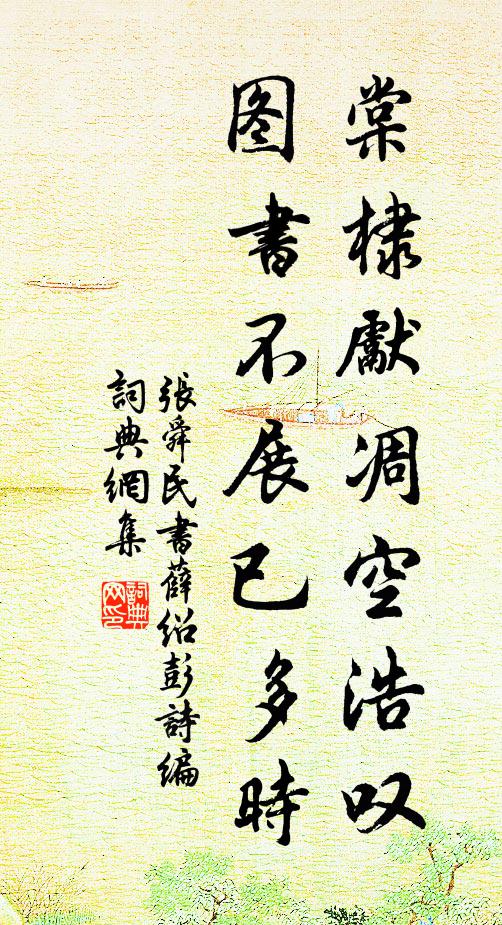 棠棣獻凋空浩叹
图書不展已多時
張舜民書薛绍彭詩編
詞典網集
詞典
网印